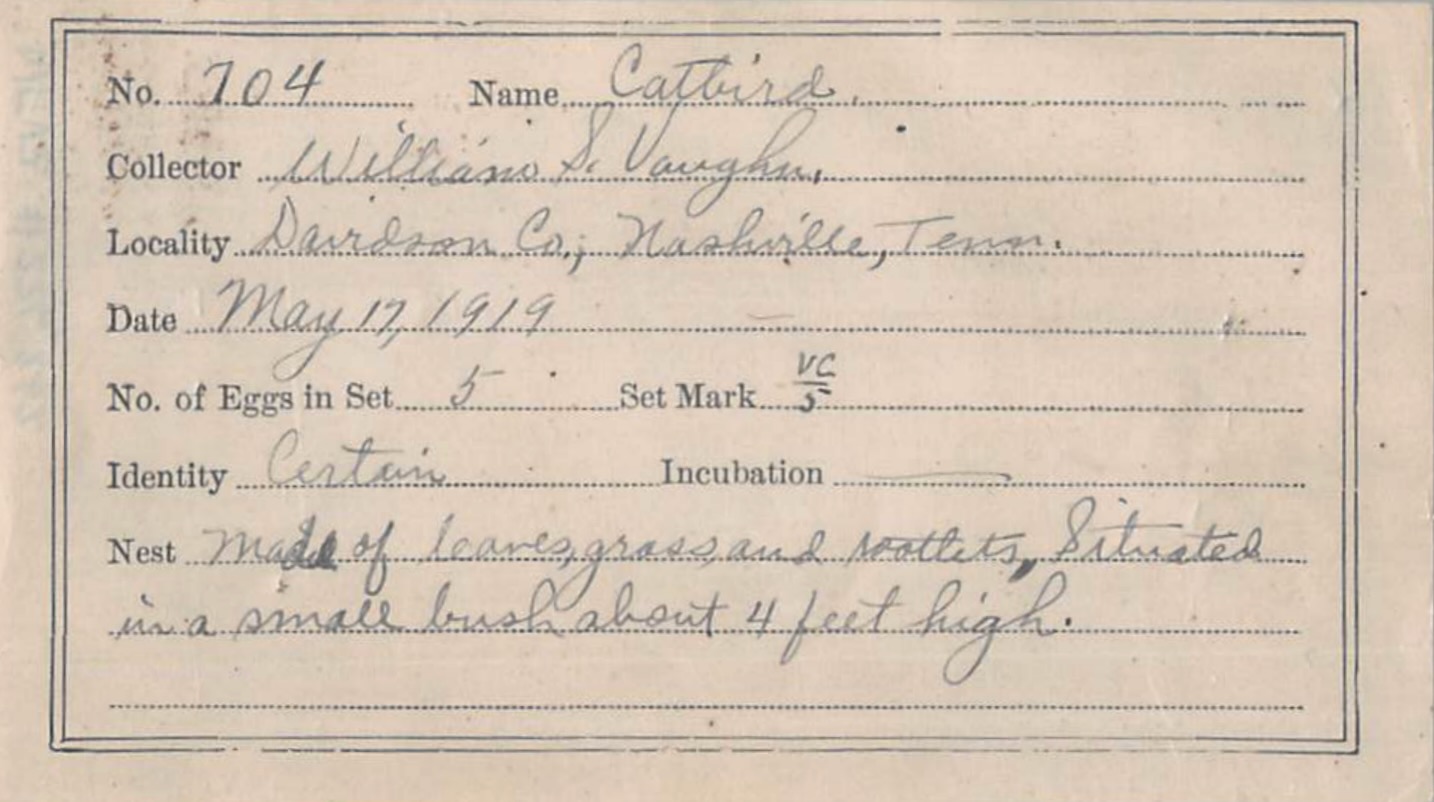 No. 704 Name Catbird.
Collector William S. Vaughn.
Locality Davidson Co.; Nashville, Tenn.
Date May 17, 1919
No. of Eggs in Set 5 Set Mark VC/5
Identity Certain Incubation —
Nest Made of leaves, grass, and rootlets, Situated
in a small bush about 4 feet high.